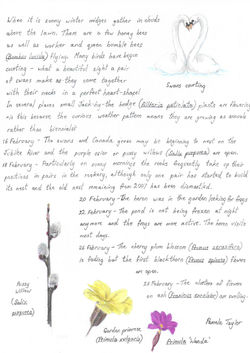 When it is sunny winter midges gather in clouds
above the lawn. There are a few honey bees
as well as worker and queen bumble bees
(Bombus lucida) flying. Many birds have begun
courting - what a beautiful sight a pair
of swans make as they come together
with their necks in a perfect heart-shape!
Swans courting
In several places small Jack-by-the hedge (Alliaria petiolata) plants are flowering
- is this because the curious weather pattern means they are growing as annuals
rather than biennials?
February - The swans and Canada geese may be beginning to nest on the
Jubilee River and the purple osier or pussy willows (Salix purpurea) are open.
18 February - Particularly on sunny mornings the rooks frequently take up their
positions in pairs in the rookery, although only one pair has started to build
its nest and the old nest remaining from 2001 has been dismantled.
20 February - The heron was in the garden looking for frogs
22. February - the pond is not being frozen at night
anymore and the frogs are more active. The heron visits
most days.
February - the cherry plum blossom (Prunus cerasifera)
is fading but the first blackthorn (Prunus spinosa) flowers
are open.
February - The clusters of flowers
on ash (Fraxinus excelsior) are swelling.
Pussy
Willow
(Salix
purpurea)
Garden primrose
(Primula vulgaris)
Pamela Taylor
Primula 'Wanda'